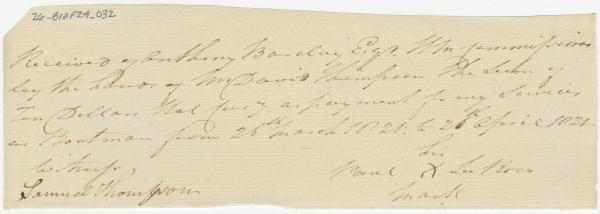 26-B10F2A_032
Received of Anthony Barclay Esqr. HM Commissioner
by the hands of Mr David Thompson the Sum of
Ten Dollars Hal Curcy, as payment for my Services
as Boatman from 26th March 1821. to 26th April 1821.
his
Witness Paul X La Ronc
Samuel Thompson mark